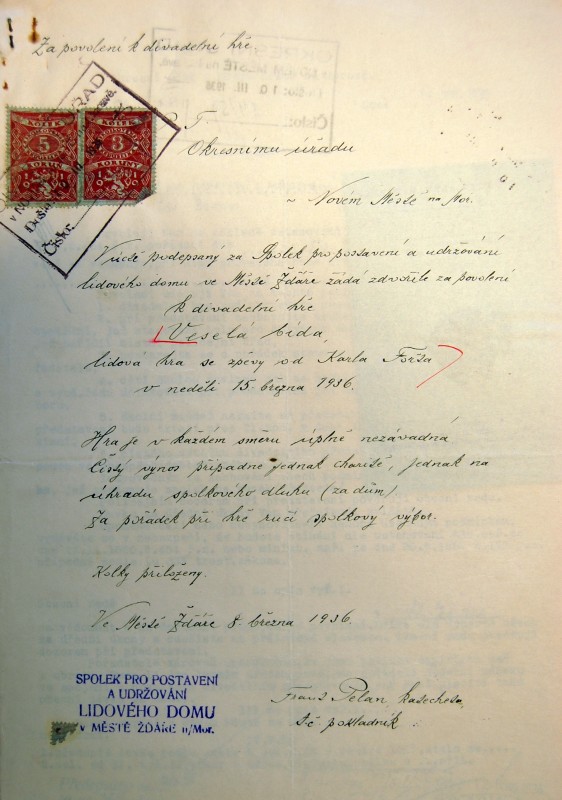 Za povolení k divadelní hře
KOLEK
5
KORUN
KOLEK
3
KORUNY
Číslo:
Číslo:
Okresnímu úřadu
v Novém Městě na Mor.
V úctě podepsaný za Spolek pro postavení a udržování
lidového domu ve Městě Žďáře žádá zdvořile za povolení
k divadelní hře
Veselá bída,
lidová hra se zpěvy od Karla Foržta
v neděli 15. března 1936.
Hra je v každém směru úplně nezávadná
Čistý výnos připadne jednak charitě, jednak na
úhradu spolkového dluhu (za dům)
Za pořádek při hře ručí spolkový výbor.
Kolky přiloženy.
Ve Městě Žďáře 8. března 1936.
SPOLEK PRO POSTAVENÍ
A UDRŽOVÁNÍ
LIDOVÉHO DOMU
v MĚSTĚ ŽĎÁŘE n/Mor.
Frant. Pelan, katecheta
t. č. pokladník